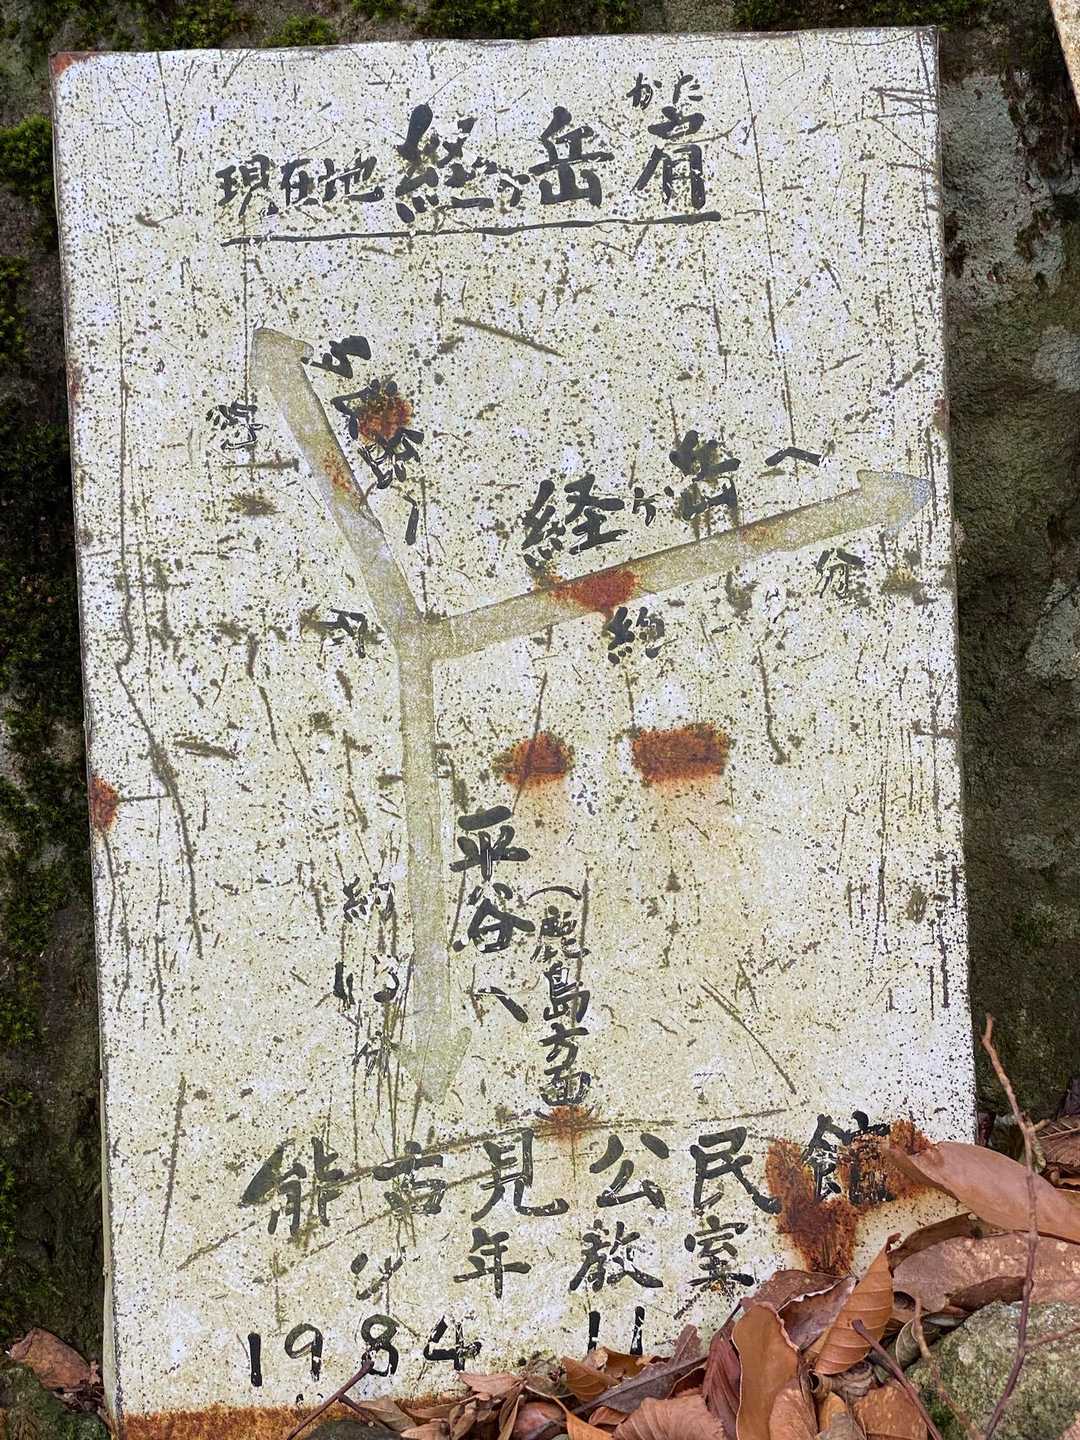 かた
現在地 経ヶ岳肩
経ヶ岳へ
約 分
平谷へ
(鹿島方面)
約
分
能古見公民館
少年教室
1984 11